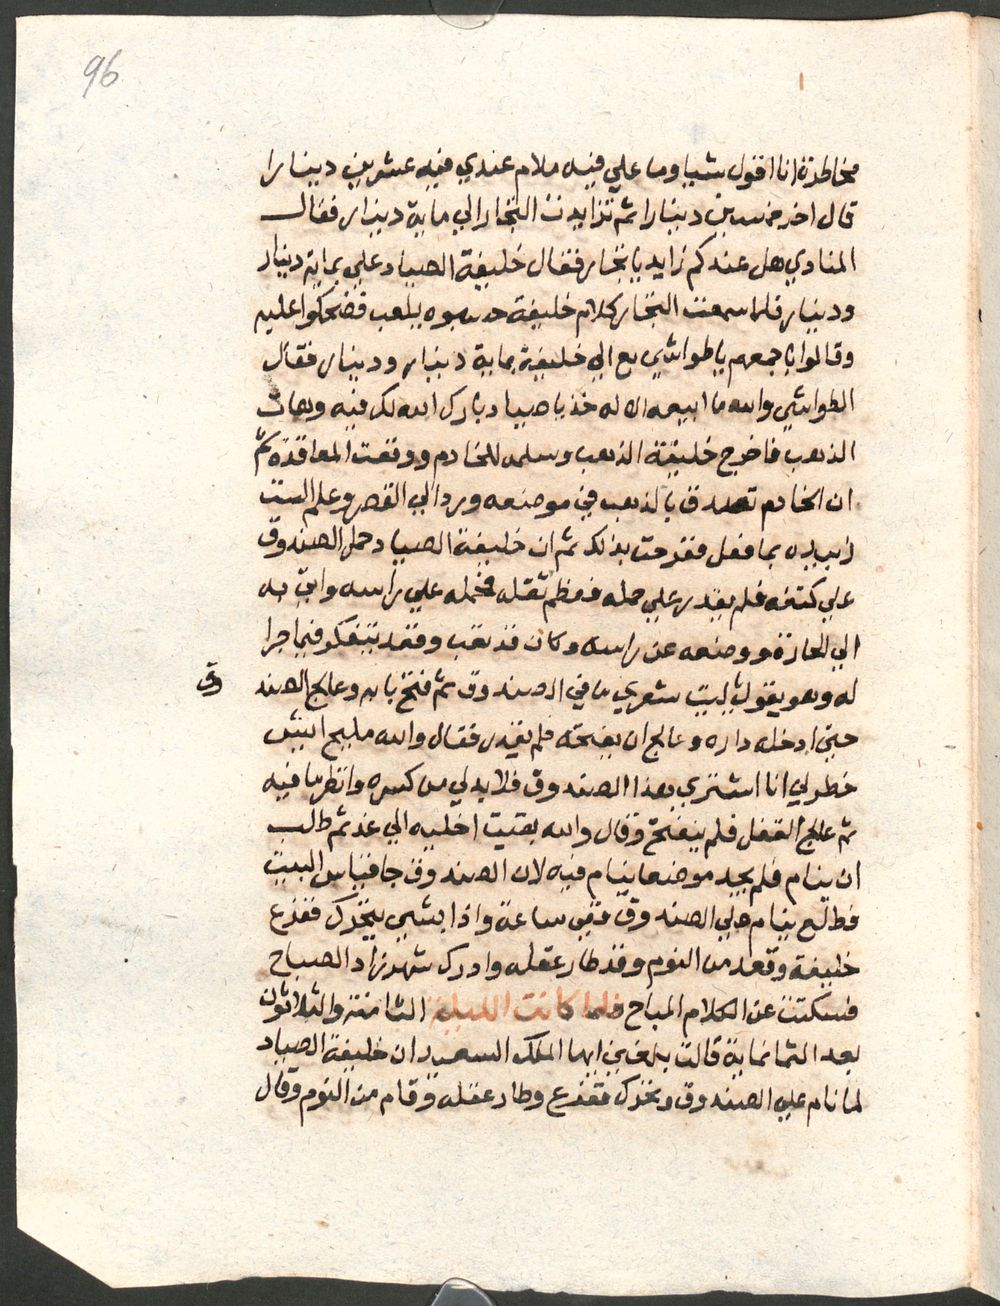 96
مخاطرة انا اقول شيا وما علي فيه ملام عندي فيه عشرين دينارا
قال اخر خمسين دينارا ثم تزايدت التجار الي ماية دينار فقال
المنادي هل عندكم زايد يا تجار فقال خليفة الصياد علي بماية دينار
ودينار فلما سمعت التجار كلام خليفة حسبوه يلعب فضحكوا عليه
وقالوا باجمعهم يا طواشي بع الي خليفة بماية دينار ودينار فقال
الطواشي والله ما ابيعه الا له خذ يا صياد بارك الله لك فيه وهات
الذهب فاخرج خليفة الذهب وسلمه للخادم ووقعت المعاقدة ثم
ان الخادم تصدق بالذهب في موضعه ورد الي القصر وعلم الست
زبيده بما فعل ففرحت بذلك ثم ان خليفة الصياد حمل الصندوق
علي كتفه فلم يقدر علي حمله فعظم ثقله فحمله علي راسه واتي به
الي الحارة ووضعه عن راسه وكان قد تعب وقعد يتفكر فيما جرا
له وهو يقول ليت شعري ما في الصندوق ثم فتح باب وعالج الصند
وق
حتي ادخله داره وعالج ان يفتحه فلم يقدر فقال والله مليح ايش
خطر لي انا اشتري هذا الصندوق فلا بد لي من كسره وانظر ما فيه
ثم عالج القفل فلم ينفتح وقال والله بقيت اخليه الي غد ثم طلب
ان ينام فلم يجد موضعا ينام فيه لان الصندوق جا قياس البيت
فطلع ينام علي الصندوق فبقي ساعة واذا بشي يتحرك ففزع
خليفة وقعد من النوم وقد طار عقله وادرك شهرزاد الصباح
فسكتت عن الكلام المباح فلما كانت الليلة الثامنة والثلاثون
بعد الثمانماية قالت بلغني ايها الملك السعيد ان خليفة الصياد
لما نام علي الصندوق وتحرك ففزع وطار عقله وقام من النوم وقال